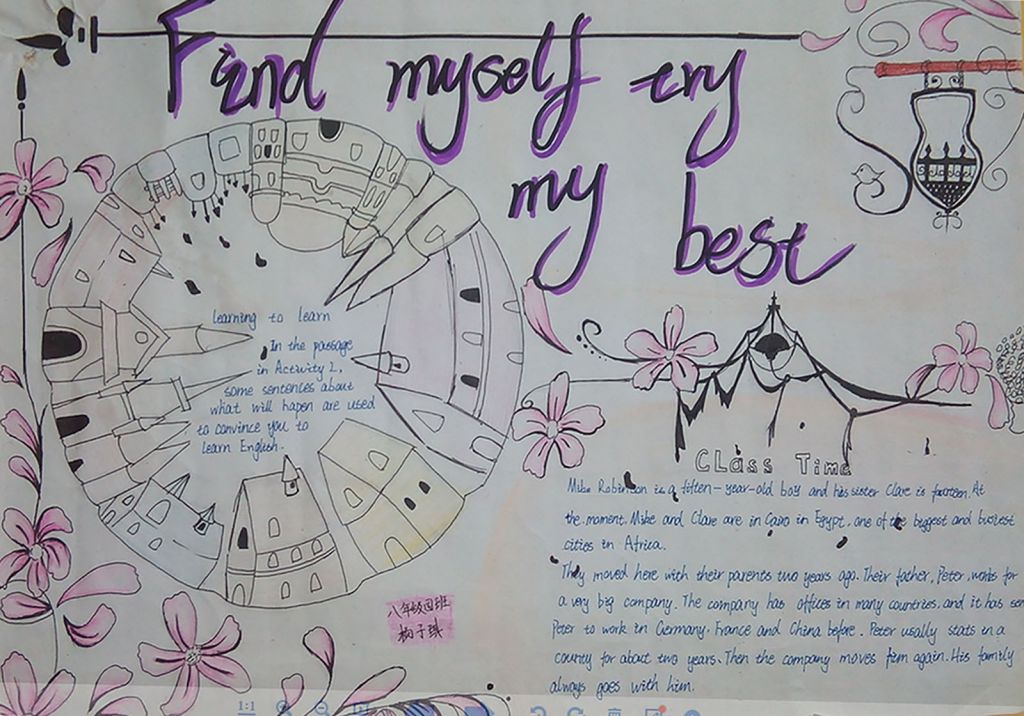 Find myself try
my best
learning to learn
In the passage
in Activity 2,
some sentences about
what will hapen are used
to convince you to
learn English.
CLass Time
Mike Robinson is a fifteen-year-old boy and his sister Clare is fourteen. At
the moment, Mike and Clare are in Cairo in Egypt, one of the biggest and busiest
cities in Africa.
They moved here with their parents two years ago. Their father, Peter, works for
a very big company. The company has offices in many countries, and it has sen
Peter to work in Germany, France and China before. Peter usally stats in a
county for about two years. Then the company moves fim again. His family
always goes with him.
八年级四班
杨子琪
1:1